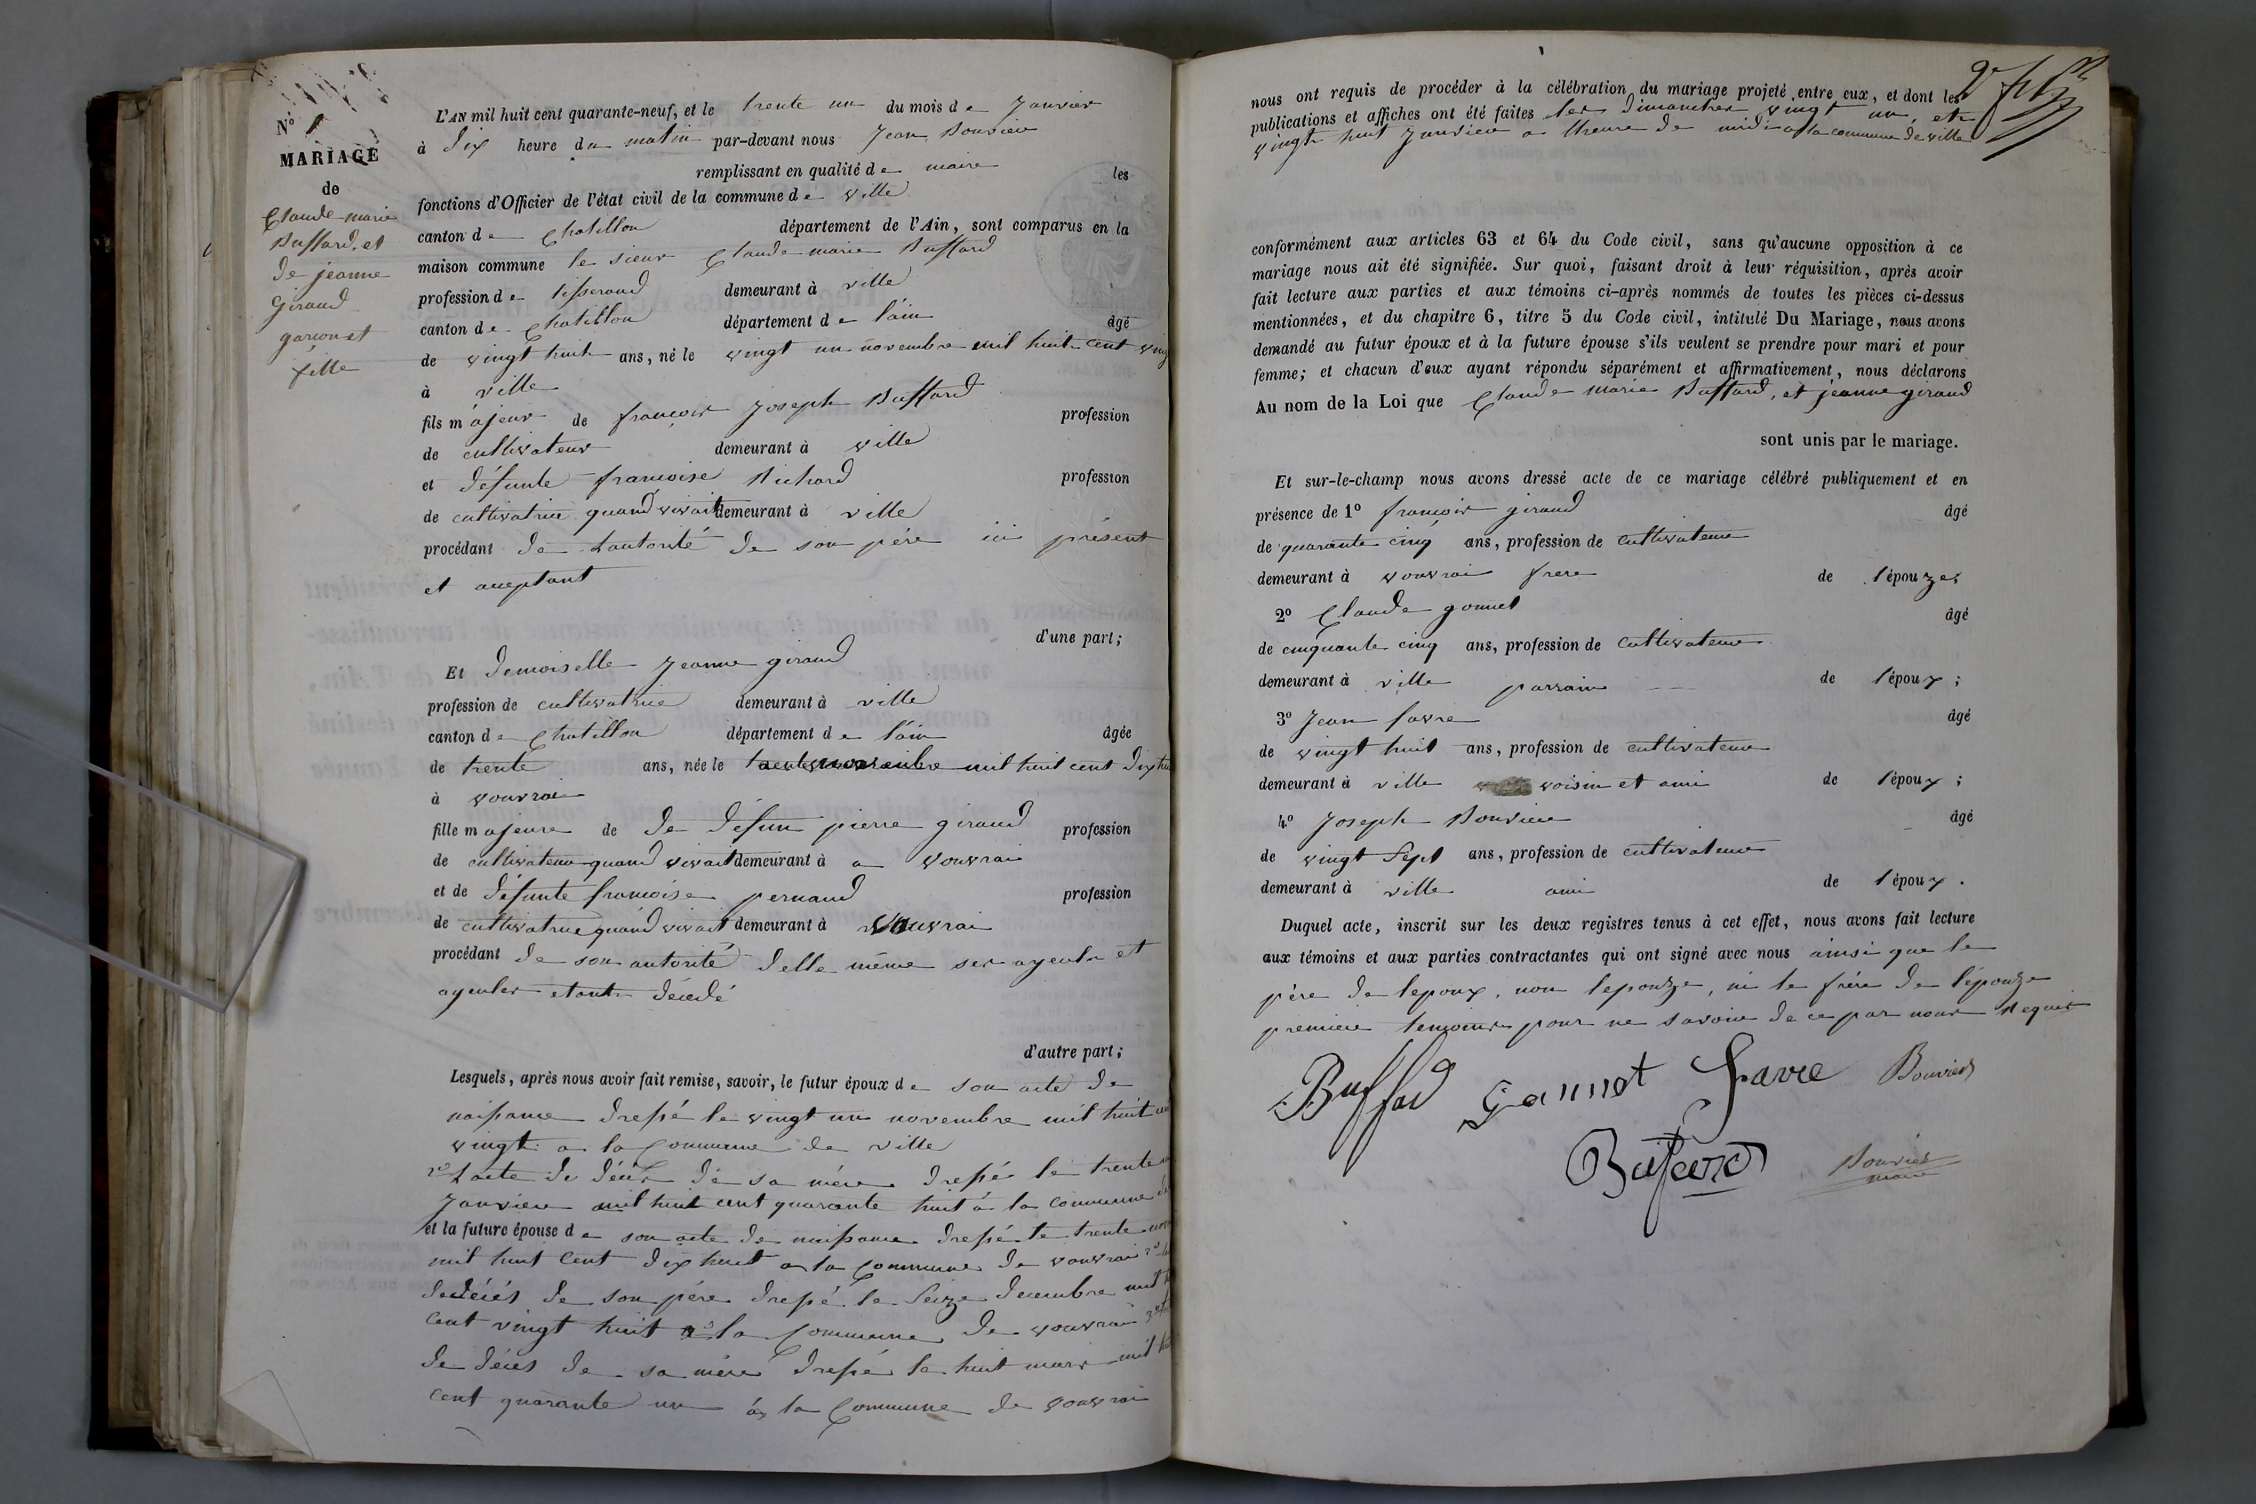 N° 1
MARIAGE
de
Claude marie
Buffard, et
de jeanne
Giraud
garcon et
fille
L'AN mil huit cent quarante-neuf, et le trente un du mois de Janvier
à dix heure du matin par-devant nous Jean Bouvier
remplissant en qualité de maire les
fonctions d'Officier de l'état civil de la commune de ville
canton de Chatillon département de l'Ain, sont comparus en la
maison commune le sieur Claude marie Buffard
profession de tisserand demeurant à ville
canton de Chatillon département de l'ain âgé
de vingt huit ans, né le vingt un novembre mil huit cent ving
à ville
fils majeur de françois Joseph Buffard profession
de cultivateur demeurant à ville
et défunte francoise Richard profession
de cultivatrice quand vivait demeurant à ville
procédant de l'autorité de son père ici présent
et acceptant
d'une part;
Et demoiselle Jeanne giraud
profession de cultivatrice demeurant à ville
canton de Chatillon département de l'ain âgée
de trente ans, née le trente novembre mil huit cent dix hu
à vouvrai
fille majeure de de défun pierre giraud profession
de cultivateur quand vivait demeurant à a vouvrai
et de défunte francoise pernaud profession
de cultivatrice quand vivait demeurant à vouvrai
procédant de son autorité delle même ses ayeuls et
ayeules etant décédé
d'autre part;
Lesquels, après nous avoir fait remise, savoir, le futur époux de son acte de
naissance dressé le vingt un novembre mil huit cent
vingt a la Commune de ville
2° L'acte de décès de sa mère dressé le trente
Janvier mil huit cent quarante huit à la Commune de
et la future épouse de son acte de naissance dressé le trente nov
mil huit cent dix huit a la Commune de vouvrai 2°
de décés de son père dressé le seize decembre mil
cent vingt huit a la Commune de vouvrai 3°
de décés de sa mère dressé le huit mars mil
cent quarante un à la Commune de vouvrai
nous ont requis de procéder à la célébration du mariage projeté entre eux, et dont les
publications et affiches ont été faites les dimanches vingt un, et
vingt huit Janvier a lheure de midi a la commune de ville
conformément aux articles 63 et 64 du Code civil, sans qu'aucune opposition à ce
mariage nous ait été signifiée. Sur quoi, faisant droit à leur réquisition, après avoir
fait lecture aux parties et aux témoins ci-après nommés de toutes les pièces ci-dessus
mentionnées, et du chapitre 6, titre 5 du Code civil, intitulé Du Mariage, nous avons
demandé au futur époux et à la future épouse s'ils veulent se prendre pour mari et pour
femme; et chacun d'eux ayant répondu séparément et affirmativement, nous déclarons
Au nom de la Loi que Claude marie Buffard, et jeanne giraud
sont unis par le mariage.
Et sur-le-champ nous avons dressé acte de ce mariage célébré publiquement et en
présence de 1° françois giraud âgé
de quarante cinq ans, profession de cultivateur
demeurant à vouvrai frere de l'épouze;
2° Claude gonnet âgé
de cinquante cinq ans, profession de cultivateur
demeurant à ville parrain de l'époux;
3° Jean favre âgé
de vingt huit ans, profession de cultivateur
demeurant à ville voisin et ami de l'époux;
4° Joseph Bouvier âgé
de vingt Sept ans, profession de cultivateur
demeurant à ville ami de l'époux.
Duquel acte, inscrit sur les deux registres tenus à cet effet, nous avons fait lecture
aux témoins et aux parties contractantes qui ont signé avec nous ainsi que le
père de lepoux, non lepouze, ni le frére de l'épouze
premiere temoins pour ne savoir de ce par nous Requis
Buffard Gannet Favre Bouvier
Bufard Bouvier
maire